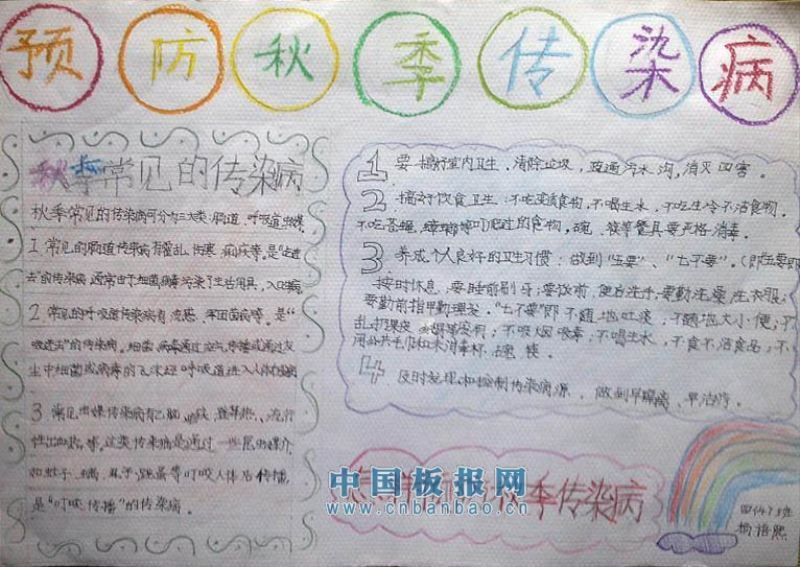 预防秋季传染病
秋季常见的传染病
秋季常见的传染病可分为三大类:肠道、呼吸道、虫媒
1 常见的肠道传染病有霍乱、伤寒、痢疾等。是"吃进
去"的传染病,通常由于细菌病毒污染了生活用具,
2. 常见的呼吸道传染病有流感、军团菌病等。是"
吸进去"的传染病。细菌、病毒通过空气传播或通过
生中细菌或病毒的飞沫经呼吸道进入人体
3 常见虫媒传染病有乙脑、登革热、流行
性出血热等,这类传染病是通过一些昆虫媒介
如蚊子、螨、虱子、跳蚤等叮咬人体后传播,
是"叮咬传播"的传染病。
1 要搞好室内卫生,清除垃圾,疏通污水沟,消灭四害。
2 搞好饮食卫生:不吃变质食物,不喝生水,不吃生冷不洁食物,
不吃苍蝇,蟑螂等叮爬过的食物,碗、筷等餐具要严格消毒。
3 养成个人良好的卫生习惯:做到"五要"、"七不要"。(即五要即
按时休息;要睡前刷牙;要饭前,便后洗手;要勤洗澡,洗衣服;
要勤剪指甲勤理发。"七不要"即不随地吐痰,不随地大小便;不
乱扔果皮;不吸烟吸毒;不喝生水,不食不洁食品;不
用公共毛巾和未消毒杯、碗、筷
4 及时发现和控制传染病源,做到早隔离、早治疗。
季传染病
中国板报网
www.cnbanbao.cn
四(4)班
杨